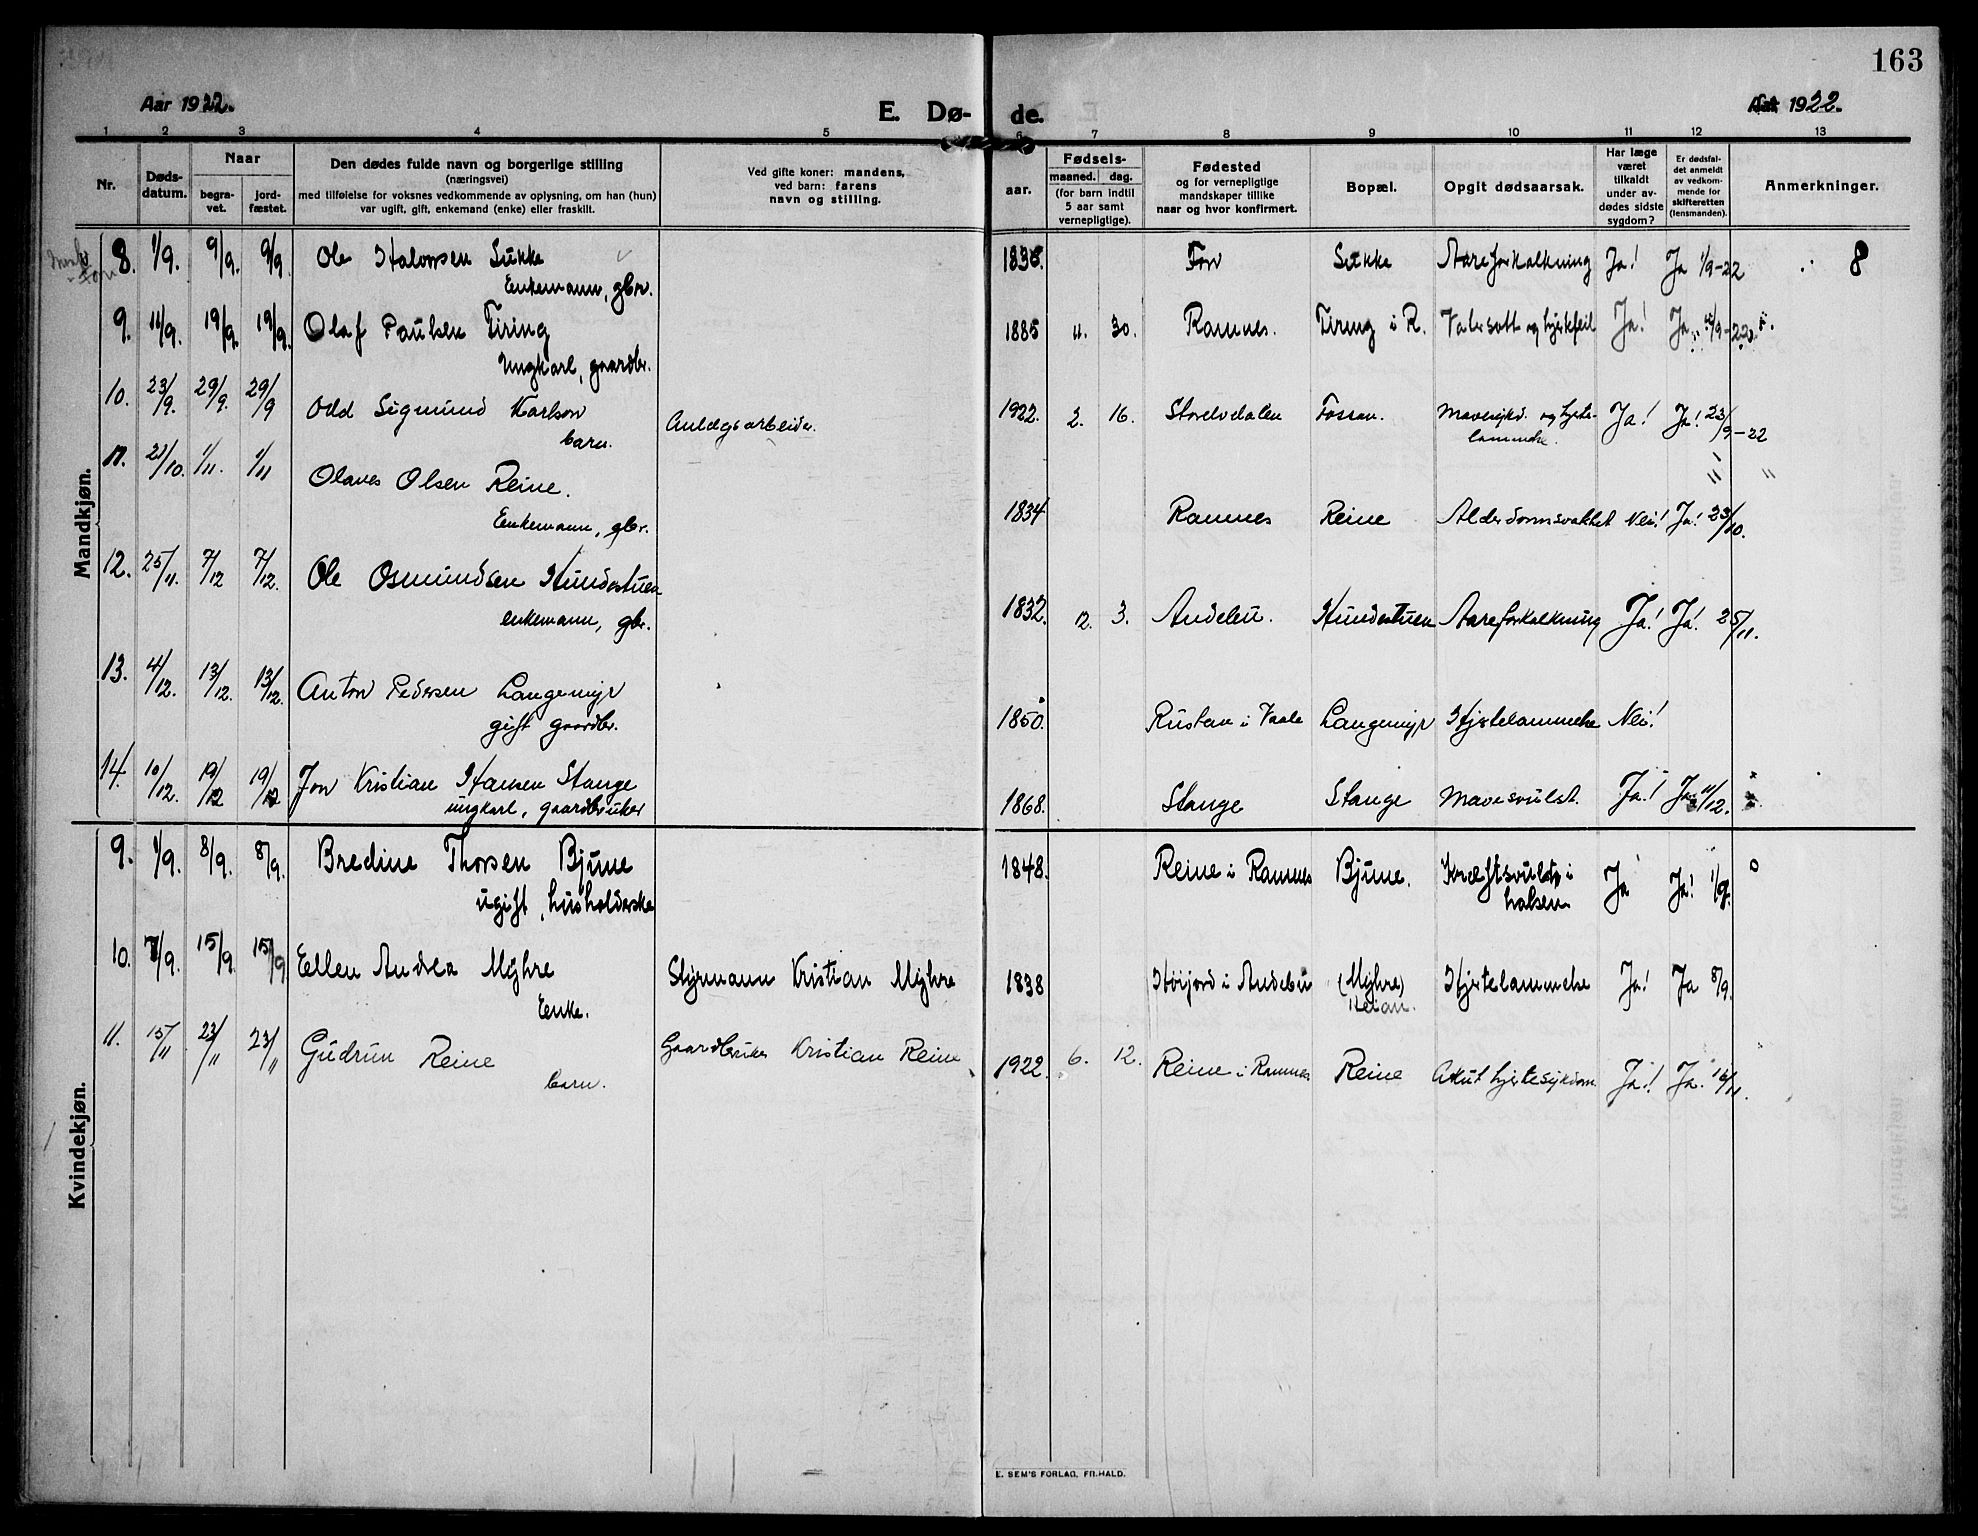 163
Aar 1922. E. Dø- de. Aar 1922.
1 2 3 4 5 6 7 8 9 10 11 12 13
Nr.
Døds-
datum.
Naar
begra-
vet.
jord-
fæstet.
Den dødes fulde navn og borgerlige stilling
(næringsvei)
med tilføielse for voksnes vedkommende av oplysning, om han (hun)
var ugift, gift, enkemand (enke) eller fraskilt.
Ved gifte koner: mandens,
ved barn: farens
navn og stilling.
aar.
Fødsels-
maaned. dag.
(for barn indtil
5 aar samt
vernepligtige).
Fødested
og for vernepligtige
mandskaper tillike
naar og hvor konfirmert.
Bopæl.
Opgit dødsaarsak.
Har læge
været
tilkaldt
under av-
dødes sidste
sygdom?
Er dødsfal-
det anmeldt
av vedkom-
mende for
skifteretten
(lensmanden).
Anmerkninger.
Mandkjøn.
8. 1/9. 9/9. 9/9. Ole Halvorsen Sukke Fon Sukke Aareforkalkning Ja! Ja 1/9-22 8
Enkemann, gbr.
9. 11/9. 19/9. 19/9. Olaf Paulsen Firing 1885 11. 30. Ramnes. Firing i R. Vatersott og hjertefeil Ja! Ja
Ungkarl, gaardbr.
10. 23/9. 29/9. 29/9 Odd Sigmund Karlson Anlægsarbeider. 1922. 2. 16. Storelvdalen Fossan. Mavesykd. og hjerte- Ja! Ja! 23/9-22
barn. lammelse.
11. 21/10. 1/11. 1/11 Olaves Olsen Reine. 1834 Ramnes Reine Alderdomsvakhet Nei! Ja! 23/10.
Enkemann, gbr.
12. 25/11. 7/12 7/12. Ole Osmundsen Hundestuen 1832. 12. 3. Andebu. Hundestuen Aareforkalkning Ja! Ja! 25/11.
enkemann, gbr.
13. 4/12. 13/12. 13/12. Anton Pedersen Langemyr 1850. Rustan i Vaale Langemyr Hjertelammelse Nei!
gift gaardbr.
14. 10/12. 19/12 19/12 Jon Kristian Hansen Stange 1868. Stange Stange Mavesvulst. Ja! Ja 11/12.
ungkarl, gaardbruker
Kvindekjøn.
9. 1/9. 8/9. 8/9. Bredine Thorsen Bjune 1848. Reine i Ramnes Bjune. Kræftsvulst i Ja Ja! 1/9.
ugift, husholderske halsen
10. 7/9. 15/9. 15/9 Ellen Andrea Myhre Styrmann Kristian Myhre 1838 Høijord i Andebu (Myhre) Hjertelammelse Ja! Ja 8/9.
Enke.
11. 15/11 23/11 23/11 Gudrun Reine Gaardbruker Kristian Reine 1922. 6. 12. Reine i Ramnes Reine Akut hjertesykdom Ja! Ja! 16/11.
barn.
E. SEM'S FORLAG, FR.HALD.